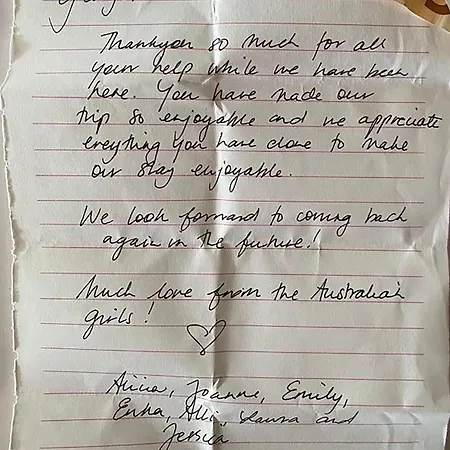 Thankyou so much for all
your help while we have been
here. You have made our
trip so enjoyable and we appreciate
ereything you have done to make
our stay enjoyable.
We look forward to coming back
again in the future!
Much love from the Australian
girls!
Alicia, Joanne, Emily,
Emma, Alli, Laura and
Jessica